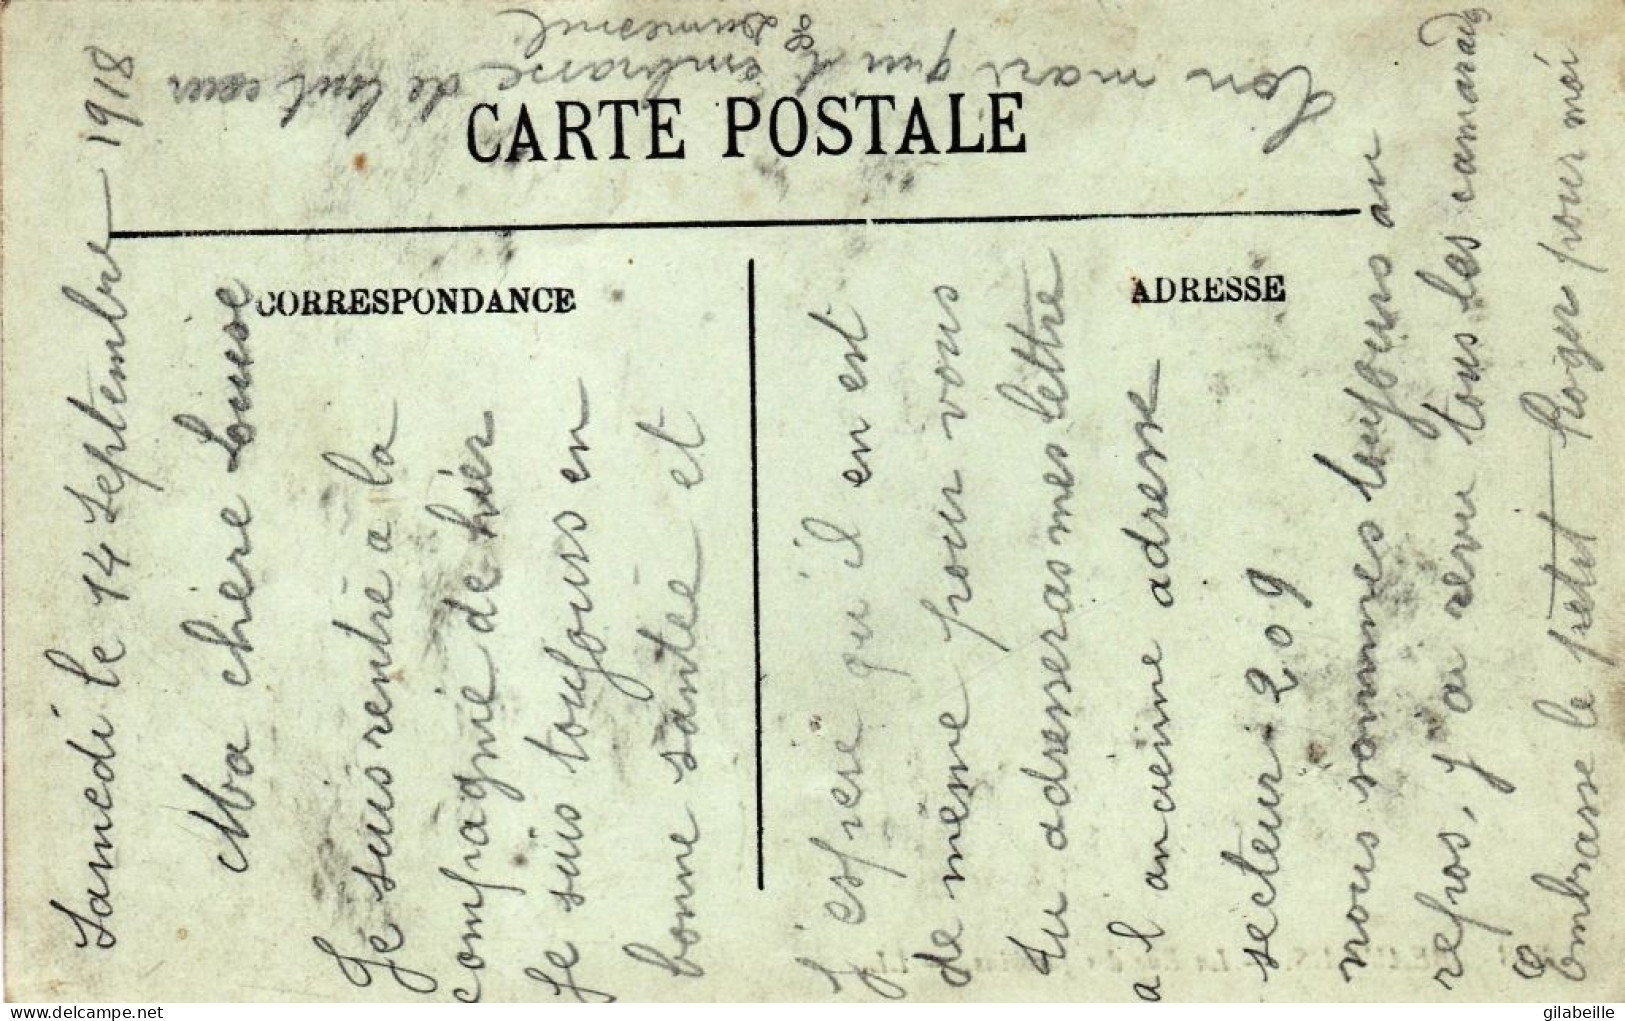 CARTE POSTALE
CORRESPONDANCE
ADRESSE
Samedi le 14 Septembre 1918
Ma chère Louise
Je suis rentré a la
compagnie de hier
Je suis toujours en
bonne santée et
J'espère qu'il en est
de même pour vous
Tu adresseras mes lettre
a l ancienne adresse
secteur 209
nous sommes toujours au
repos, j ai revu tous les camarades
Embrasse le petit Roger pour moi
Ton mari qui t'embrasse de tout cœur
Dumesnil
www.delcampe.net
gilabeille